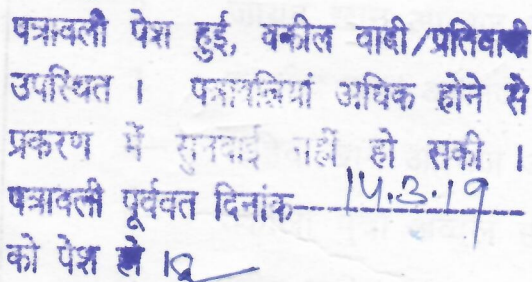 पत्रावली पेश हुई, वकील वादी/प्रतिवादी
उपस्थित । पत्रावलियां अधिक होने से
प्रकरण में सुनवाई नहीं हो सकी ।
पत्रावली पूर्ववत दिनांक---14.3.19---
को पेश हो ।